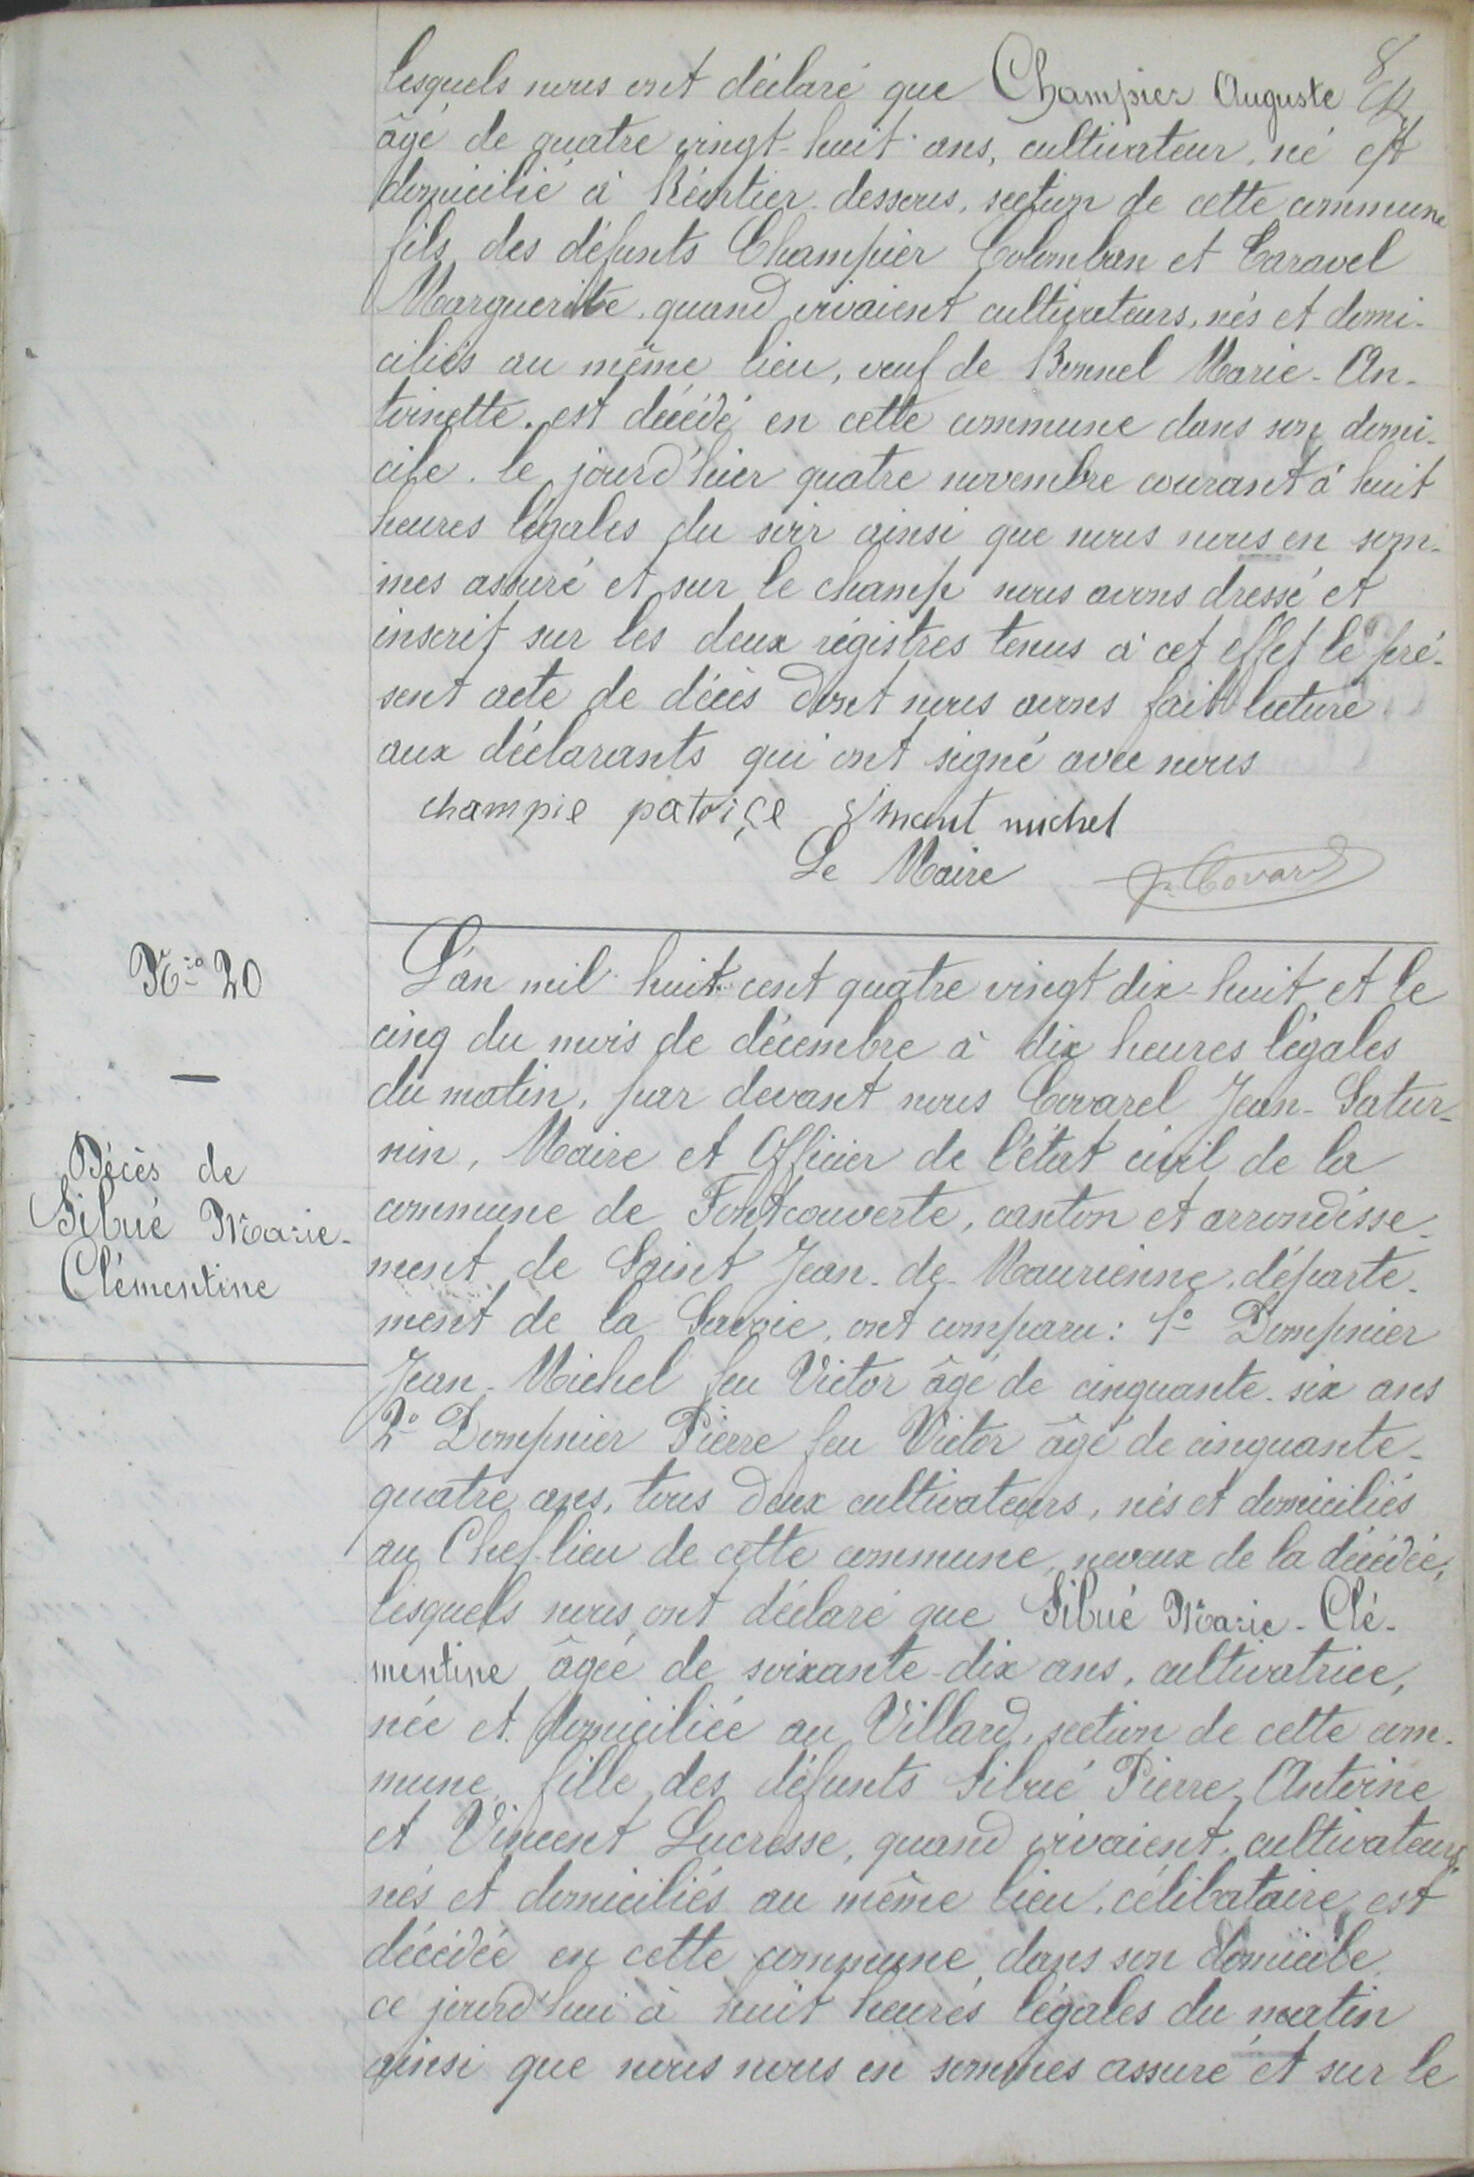 8
lesquels nous ont déclaré que Champier Auguste
âgé de quatre vingt-huit ans, cultivateur, né et
domicilié à Rérltier-dessous, section de cette commune
fils des défunts Champier Colomban et Caravel
Marguerite, quand vivaient cultivateurs, nés et domi-
ciliés au même lieu, veuf de Bonnel Marie-An-
toinette. est décédé en cette commune dans son domi-
cile. le jourd'hier quatre novembre courant à huit
heures légales du soir ainsi que nous nous en som-
mes assuré et sur le champ nous avons dressé et
inscrit sur les deux régistres tenus à cet effet le pré-
sent acte de décès dont nous avons fait lecture
aux déclarants qui ont signé avec nous
champie patrice michel
Le Maire J. Covarel
N.º 20
—
Décès de
Sibué Marie-
Clémentine
L'an mil huit cent quatre vingt dix-huit et le
cinq du mois de décembre à dix heures légales
du matin, par devant nous Covarel Jean-Satur-
nin, Maire et Officier de l'état civil de la
commune de Fontcouverte, canton et arrondisse-
ment de Saint Jean-de-Maurienne, départe-
ment de la Savoie, ont comparu: 1º Dompnier
Jean-Michel feu Victor âgé de cinquante-six ans
2º Dompnier Pierre feu Victor âgé de cinquante-
quatre ans, tous deux cultivateurs, nés et domiciliés
au Chef-lieu de cette commune, neveux de la décédée,
lesquels nous ont déclaré que Sibué Marie-Clé-
mentine âgée de soixante-dix ans, cultivatrice,
née et domiciliée au Villard, section de cette com-
mune, fille des défunts Sibué Pierre Antoine
et Vincent Lucresse, quand vivaient, cultivateurs,
nés et domiciliés au même lieu, célibataire est
décédée en cette commune, dans son domicile
ce jourd'hui à huit heures légales du matin
ainsi que nous nous en sommes assuré et sur le